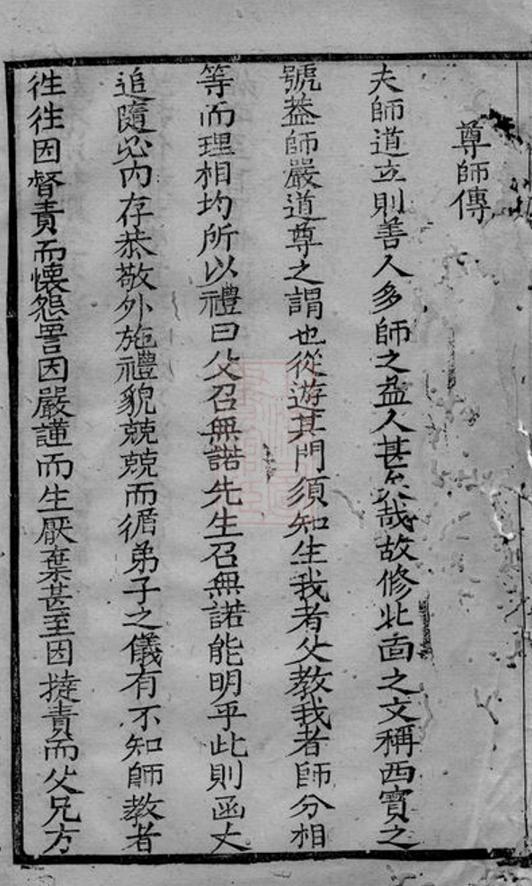 尊師傳
夫師道立則善人多師之益人甚矣哉故修北面之文稱西賓之
號葢師嚴道尊之謂也從遊其門須知生我者父教我者師分相
等而理相均所以禮曰父召無諾先生召無諾能明乎此則函丈
追隨必內存恭敬外施禮貌兢兢而循弟子之儀有不知師教者
徃徃因督責而懷怨詈因嚴謹而生厭棄甚至因撻責而父兄方